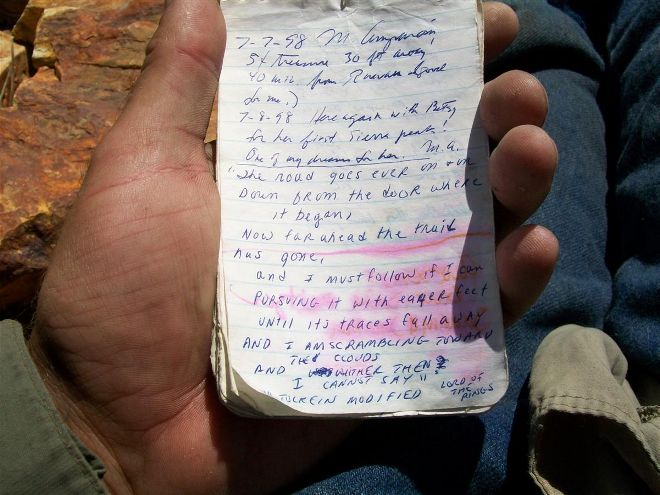 7-7-98 M
5th 30 ft away,
40 min. from
for me.)
7-8-98 Here again with Betsy
for her first Sierra peak!
One of my dreams for her. M.A.
"The road goes ever on & on
Down from the door where
it began,
Now far ahead the trail
has gone,
and I must follow if I can
PURSUING it with eager feet
UNTIL its traces fall away
AND I AM SCRAMBLING TOWARD
THE CLOUDS
AND WHITHER THEN?
I CANNOT SAY"
TOLKEIN MODIFIED LORD OF
THE
RINGS